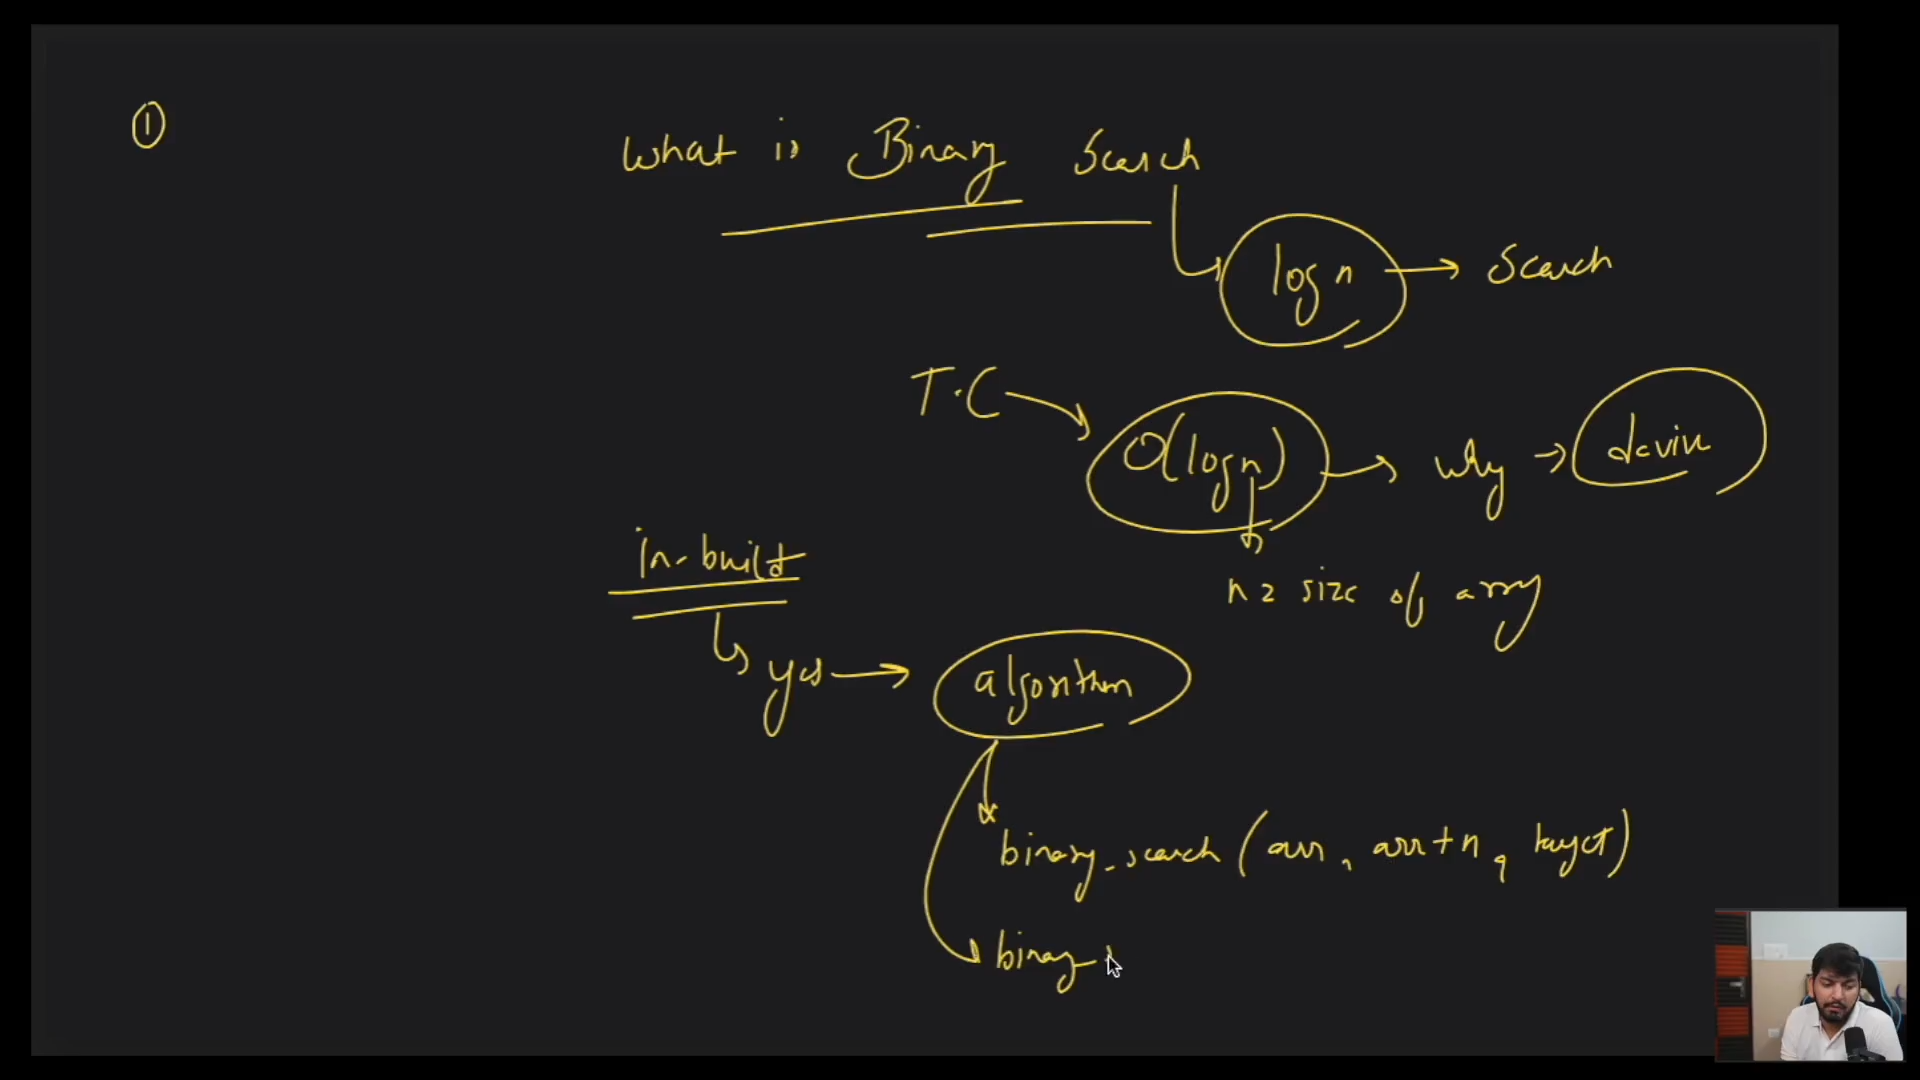 ①
What is Binary Search
log n → Search
T.C → O(log n) → why → derive
in-built
n = size of array
yes → algorithm
binary_search (arr, arr+n, target)
binary_